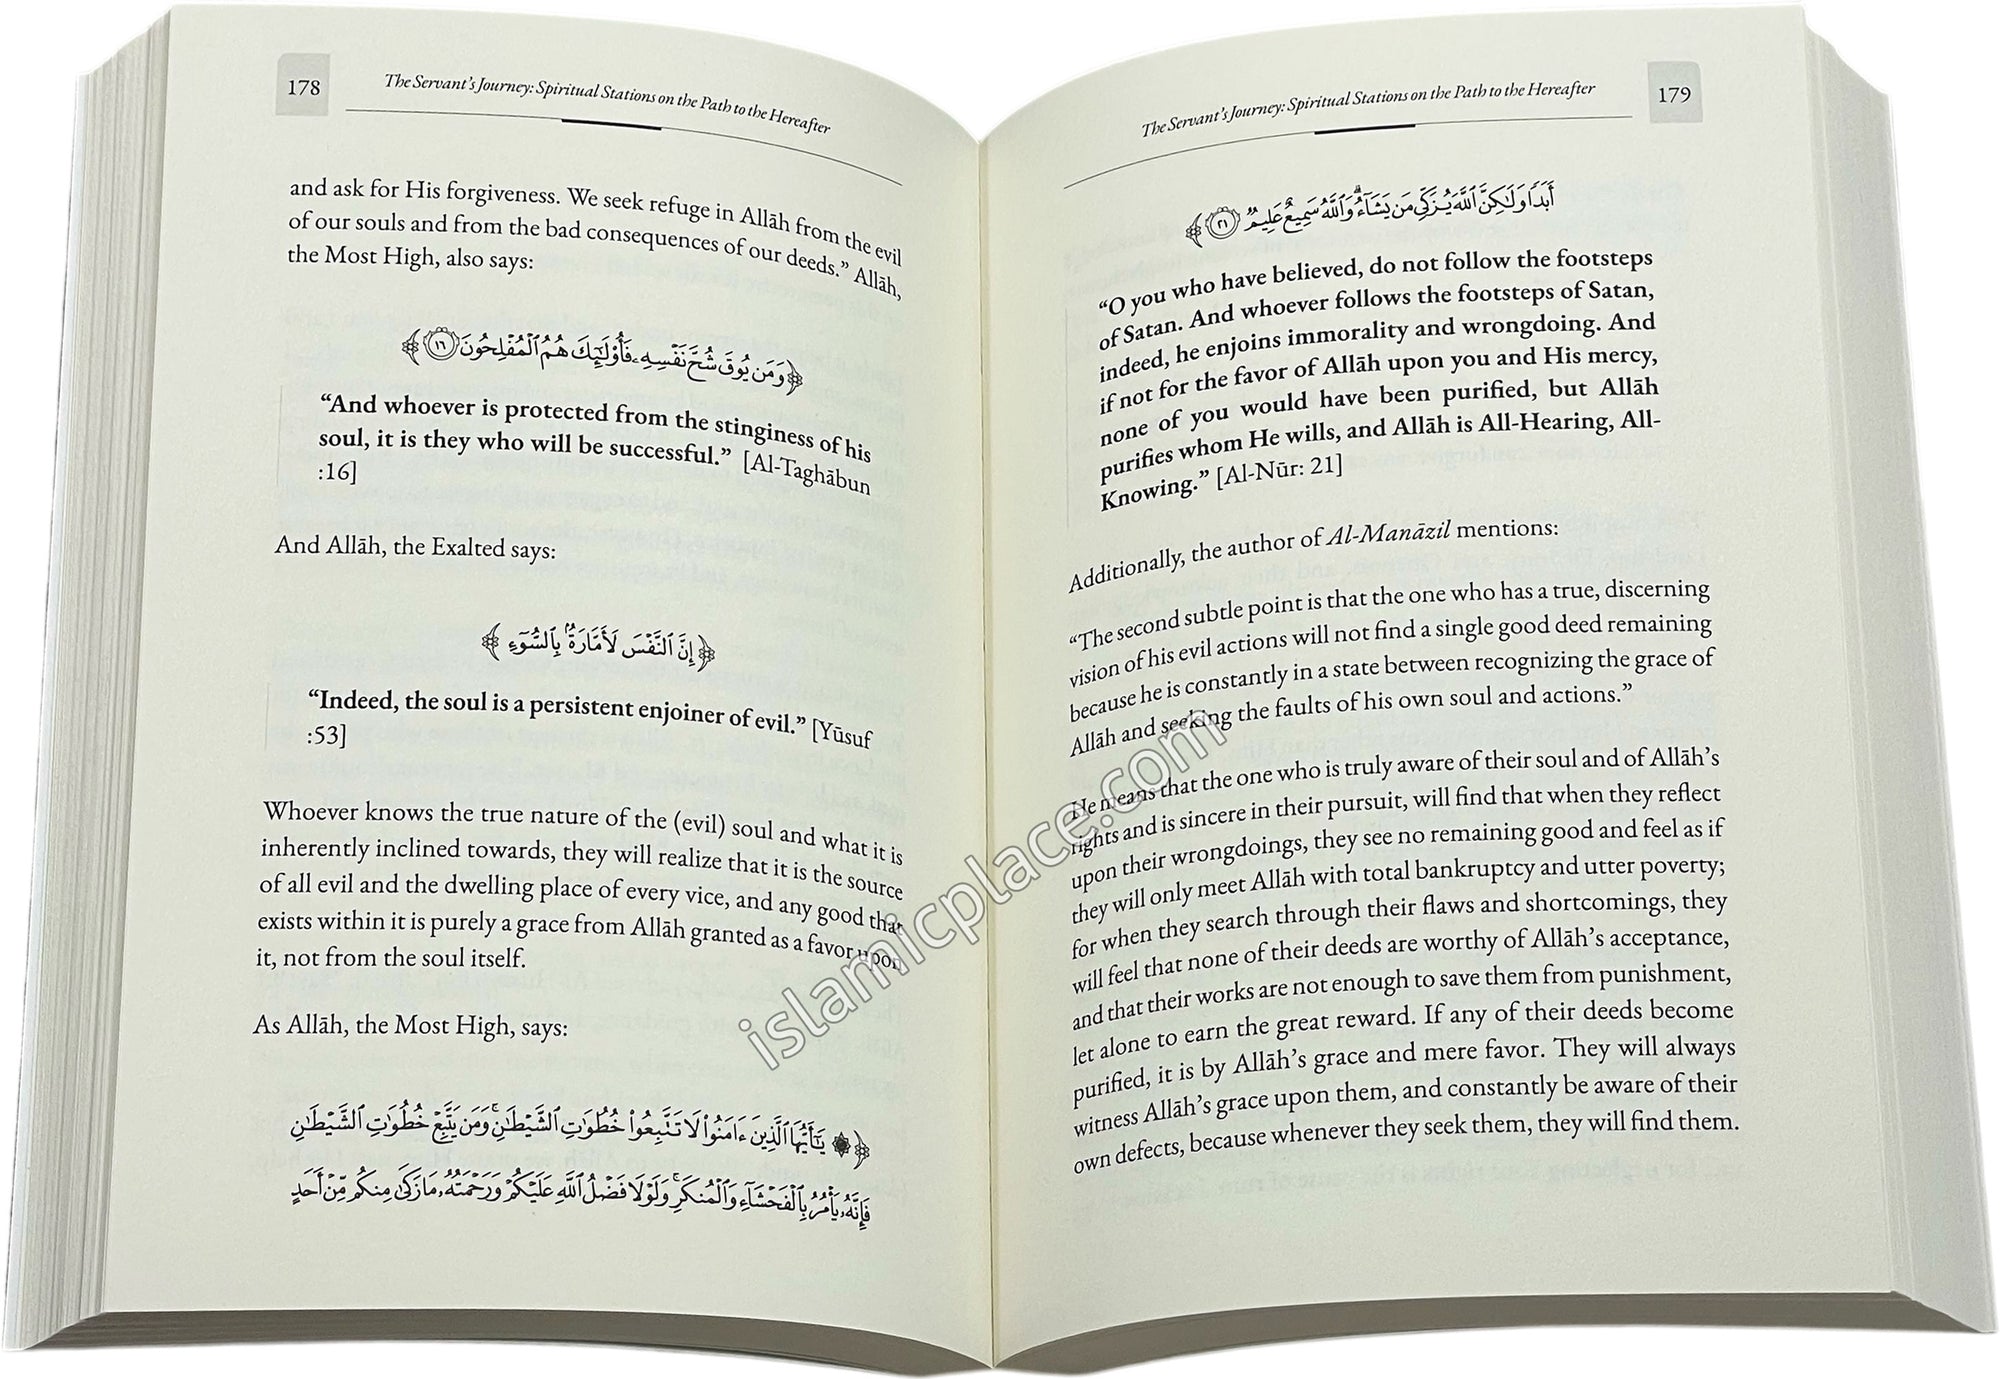 178
The Servant's Journey: Spiritual Stations on the Path to the Hereafter
and ask for His forgiveness. We seek refuge in Allāh from the evil
of our souls and from the bad consequences of our deeds.” Allāh,
the Most High, also says:
﴿وَمَن يُوقَ شُحَّ نَفْسِهِۦ فَأُو۟لَـٰٓئِكَ هُمُ ٱلْمُفْلِحُونَ ١٦﴾
“And whoever is protected from the stinginess of his
soul, it is they who will be successful.” [Al-Taghābun
:16]
And Allāh, the Exalted says:
﴿إِنَّ ٱلنَّفْسَ لَأَمَّارَةٌۢ بِٱلسُّوٓءِ﴾
“Indeed, the soul is a persistent enjoiner of evil.” [Yūsuf
:53]
Whoever knows the true nature of the (evil) soul and what it is
inherently inclined towards, they will realize that it is the source
of all evil and the dwelling place of every vice, and any good that
exists within it is purely a grace from Allāh granted as a favor upon
it, not from the soul itself.
As Allāh, the Most High, says:
﴿۞ يَـٰٓأَيُّهَا ٱلَّذِينَ ءَامَنُوا۟ لَا تَتَّبِعُوا۟ خُطُوَٰتِ ٱلشَّيْطَـٰنِ ۚ وَمَن يَتَّبِعْ خُطُوَٰتِ ٱلشَّيْطَـٰنِ
فَإِنَّهُۥ يَأْمُرُ بِٱلْفَحْشَآءِ وَٱلْمُنكَرِ ۚ وَلَوْلَا فَضْلُ ٱللَّهِ عَلَيْكُمْ وَرَحْمَتُهُۥ مَا زَكَىٰ مِنكُم مِّنْ أَحَدٍ
179
The Servant's Journey: Spiritual Stations on the Path to the Hereafter
أَبَدًا وَلَـٰكِنَّ ٱللَّهَ يُزَكِّى مَن يَشَآءُ ۗ وَٱللَّهُ سَمِيعٌ عَلِيمٌ ٢١﴾
“O you who have believed, do not follow the footsteps
of Satan. And whoever follows the footsteps of Satan,
indeed, he enjoins immorality and wrongdoing. And
if not for the favor of Allāh upon you and His mercy,
none of you would have been purified, but Allāh
purifies whom He wills, and Allāh is All-Hearing, All-
Knowing.” [Al-Nūr: 21]
Additionally, the author of Al-Manāzil mentions:
“The second subtle point is that the one who has a true, discerning
vision of his evil actions will not find a single good deed remaining
because he is constantly in a state between recognizing the grace of
Allāh and seeking the faults of his own soul and actions.”
He means that the one who is truly aware of their soul and of Allāh's
rights and is sincere in their pursuit, will find that when they reflect
upon their wrongdoings, they see no remaining good and feel as if
they will only meet Allāh with total bankruptcy and utter poverty;
for when they search through their flaws and shortcomings, they
will feel that none of their deeds are worthy of Allāh's acceptance,
and that their works are not enough to save them from punishment,
let alone to earn the great reward. If any of their deeds become
purified, it is by Allāh's grace and mere favor. They will always
witness Allāh's grace upon them, and constantly be aware of their
own defects, because whenever they seek them, they will find them.
islamicplace.com